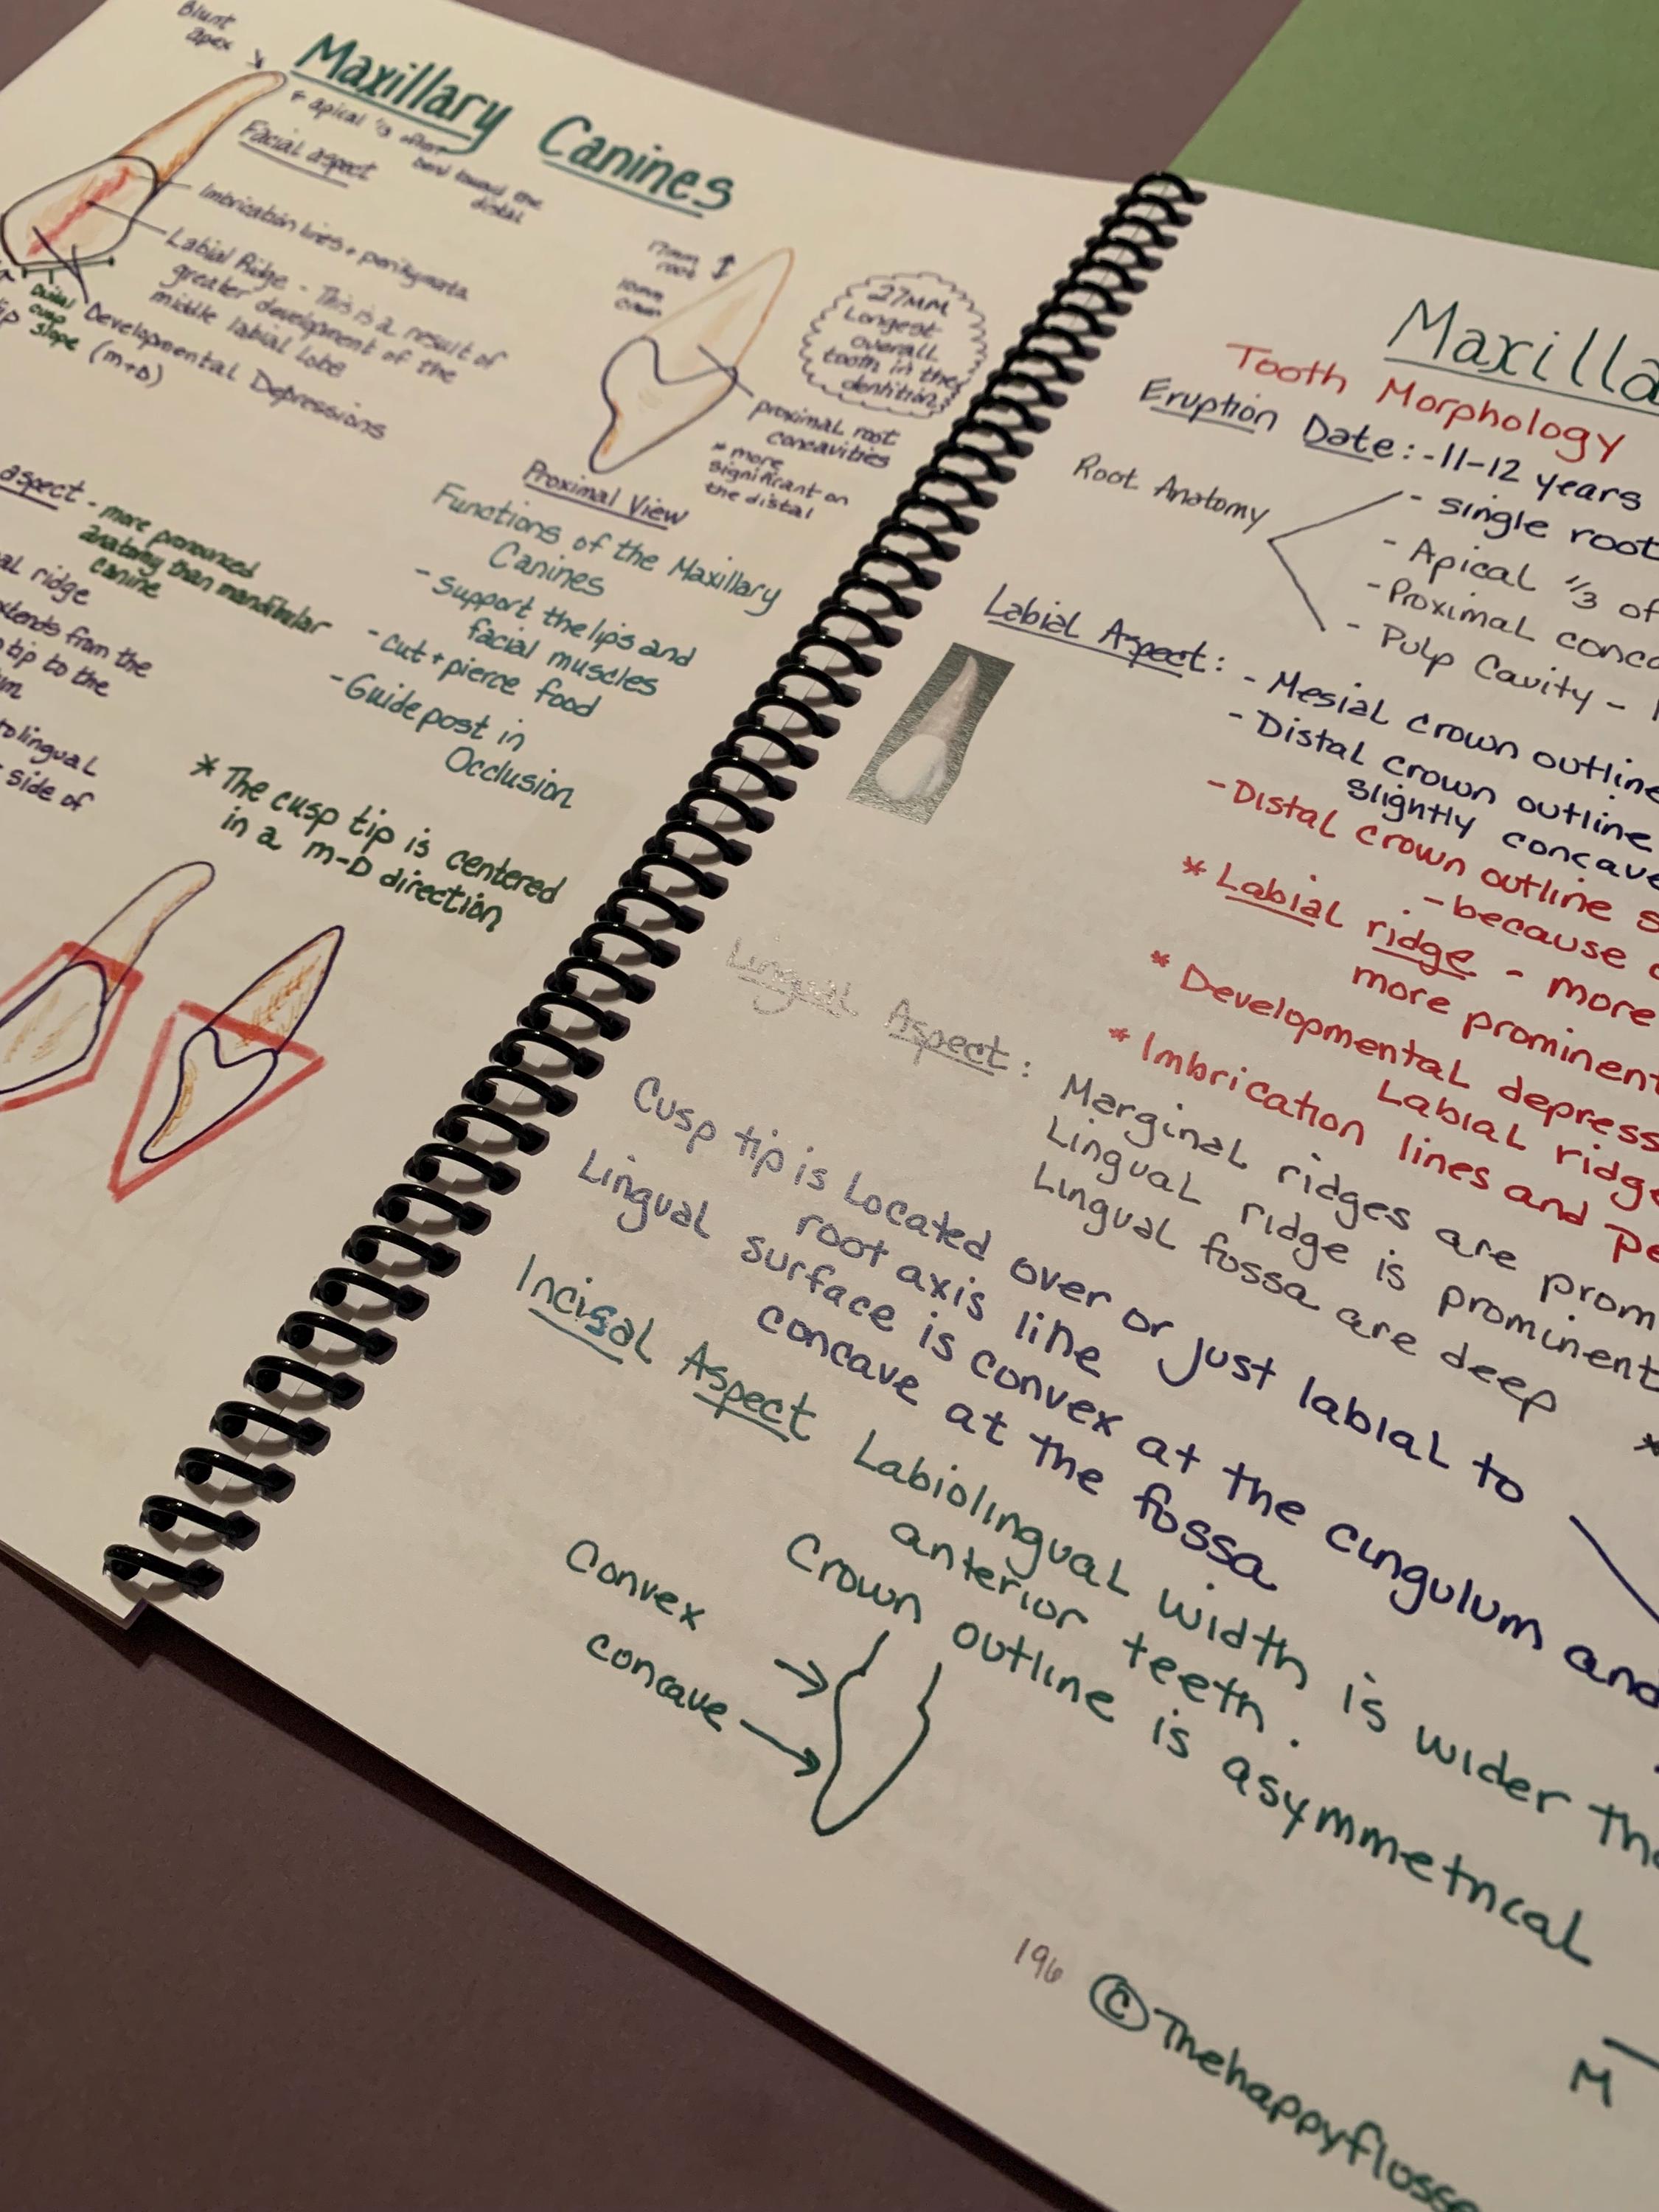 Blunt
apex
Maxillary Canines
* apical 1/3 often
bend toward the
distal
Facial aspect
Imbrication lines + perikymata
Labial Ridge - This is a result of
greater development of the
middle labial lobe
Developmental Depressions
(m+D)
Distal
cusp
slope
tip
17mm
root
10mm
crown
27MM
Longest
overall
tooth in the
dentition
proximal root
concavities
* more
significant on
the distal
Proximal View
aspect - more pronounced
anatomy than mandibular
canine
al ridge
xtends from the
tip to the
m
to lingual
side of
Functions of the Maxillary
Canines
- support the lips and
facial muscles
- cut + pierce food
- Guide post in
Occlusion
* The cusp tip is centered
in a m-D direction
Maxilla
Tooth Morphology
Eruption Date: - 11-12 years
Root Anatomy
- single root
- Apical 1/3 of
- Proximal conca
- Pulp Cavity -
Labial Aspect:
- Mesial crown outline
- Distal crown outline
slightly concave
- Distal crown outline s
- because
* Labial ridge - more
more prominent
* Developmental depress
Labial ridge
* Imbrication lines and Pe
Lingual Aspect:
Marginal ridges are prom
Lingual ridge is prominent
Lingual fossa are deep
*
Cusp tip is located over or just labial to
root axis line
Lingual surface is convex at the cingulum and
concave at the fossa
Incisal Aspect
Labiolingual width is wider tha
anterior teeth.
Crown outline is asymmetrical
Convex
concave
M
196
©Thehappyflosse